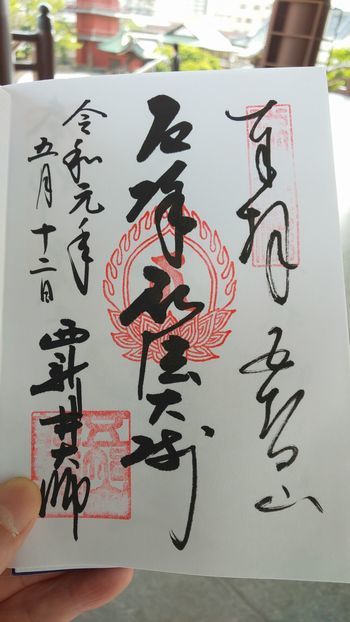 奉拝
五智山
厄除弘法大師
令和元年
五月十二日
西新井大師